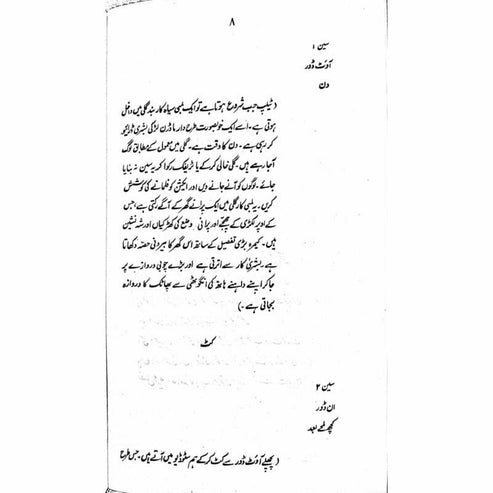 ۸
سین ۱
آؤٹ ڈور
دن
( ٹیلپ جب شروع ہوتا ہے تو ایک لمبی سیاہ کار بند گلی میں داخل
ہوتی ہے۔ اسے ایک خوبصورت طرح دار ماڈرن لڑکی بشریٰ ڈرائیو
کر رہی ہے۔ دن کا وقت ہے۔ گلی میں معمول کے مطابق لوگ
آ جا رہے ہیں۔ گلی خالی کر کے یا ٹریفک رکوا کر یہ سین نہ بنایا
جائے۔ لوگوں کو آنے جانے دیں اور ایکشن کو فلمانے کی کوشش
کریں۔ یہ لمبی کار گلی میں ایک پرانے گھر کے آگے رکتی ہے، جس
کے اوپر لکڑی کے چھجے اور پرانی وضع کی کھڑکیاں اور شہ نشین
ہیں۔ کیمرہ بڑی تفصیل کے ساتھ اس گھر کا بیرونی حصہ دکھاتا
ہے۔ بشریٰ کار سے اترتی ہے اور بڑے چوبی دروازے پر
جا کر اپنے داہنے ہاتھ کی انگوٹھی سے پھاٹک کا دروازہ
بجاتی ہے۔)
کٹ
سین ۲
ان ڈور
کچھ لمحے بعد
( پچھلے آؤٹ ڈور سے کٹ کر کے ہم سٹوڈیو میں آتے ہیں۔ جس طرح